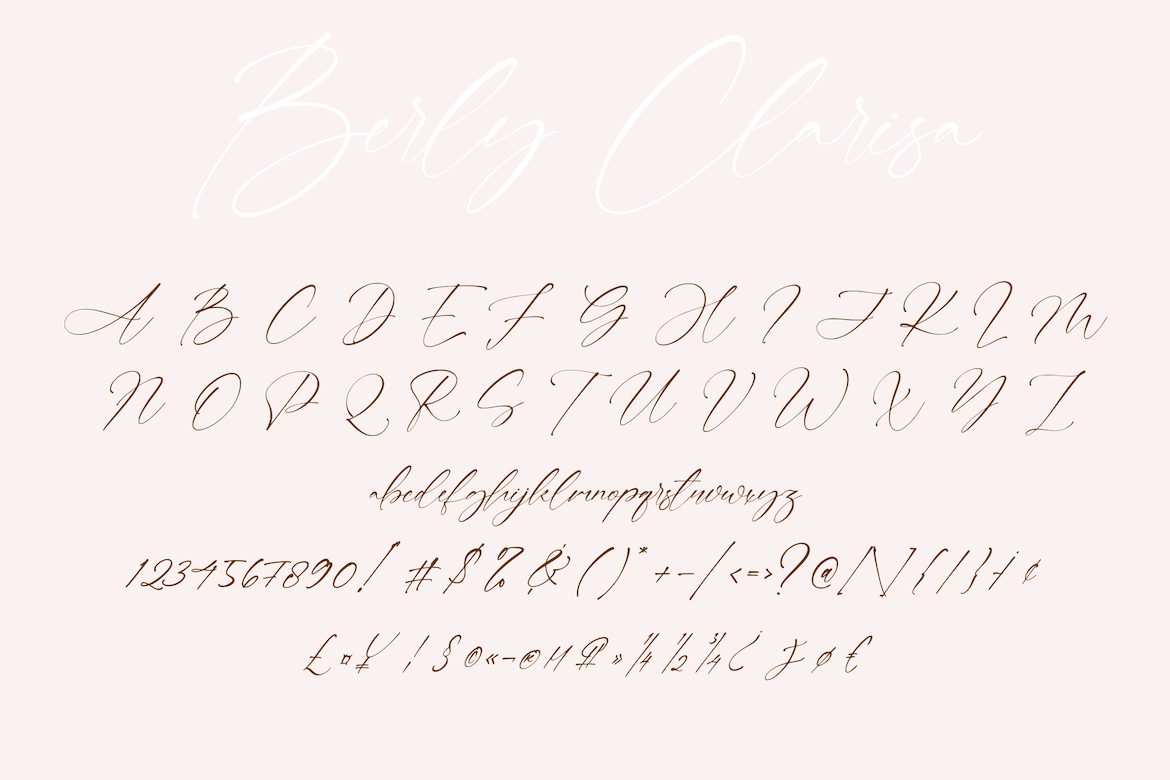 Berly Clarisa
A B C D E F G H I J K L M
N O P Q R S T U V W X Y Z
abcdefghijklmnopqrstuvwxyz
1234567890! # $ % & ( ) * + - / < = > ? @ [ \ ] { | } ¢
£ ¤ ¥ § © « ¬ » ¼ ½ ¾ ¿ €